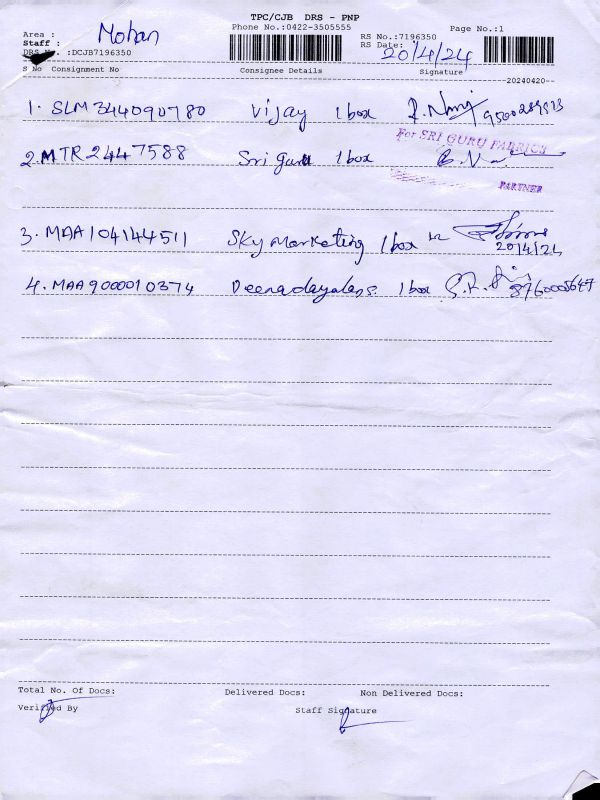 TPC/CJB DRS - PNP
Area : Mohan Phone No.:0422-3505555 RS No.:7196350 Page No.:1
Staff : RS Date: 20/4/24
DRS No. :DCJB7196350
S No Consignment No Consignee Details Signature
20240420
1. SLM344090780 Vijay 1 box
2. MTR2447588 Sri guru 1 box
For SRI GURU FABRICS
PARTNER
3. MAA104144511 Sky Marketing 1 box
20/4/24
4. MAA900010374 Deenadayalans. 1 box 8760005647
Total No. Of Docs: Delivered Docs: Non Delivered Docs:
Verified By Staff Signature